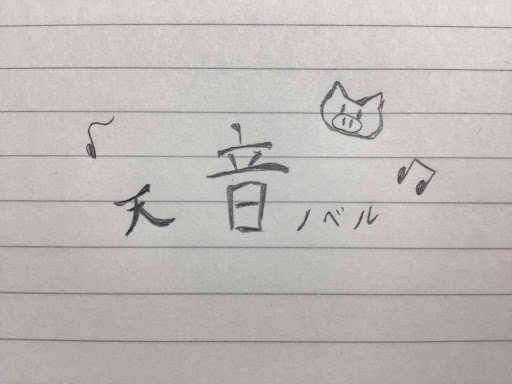 天音ノベル